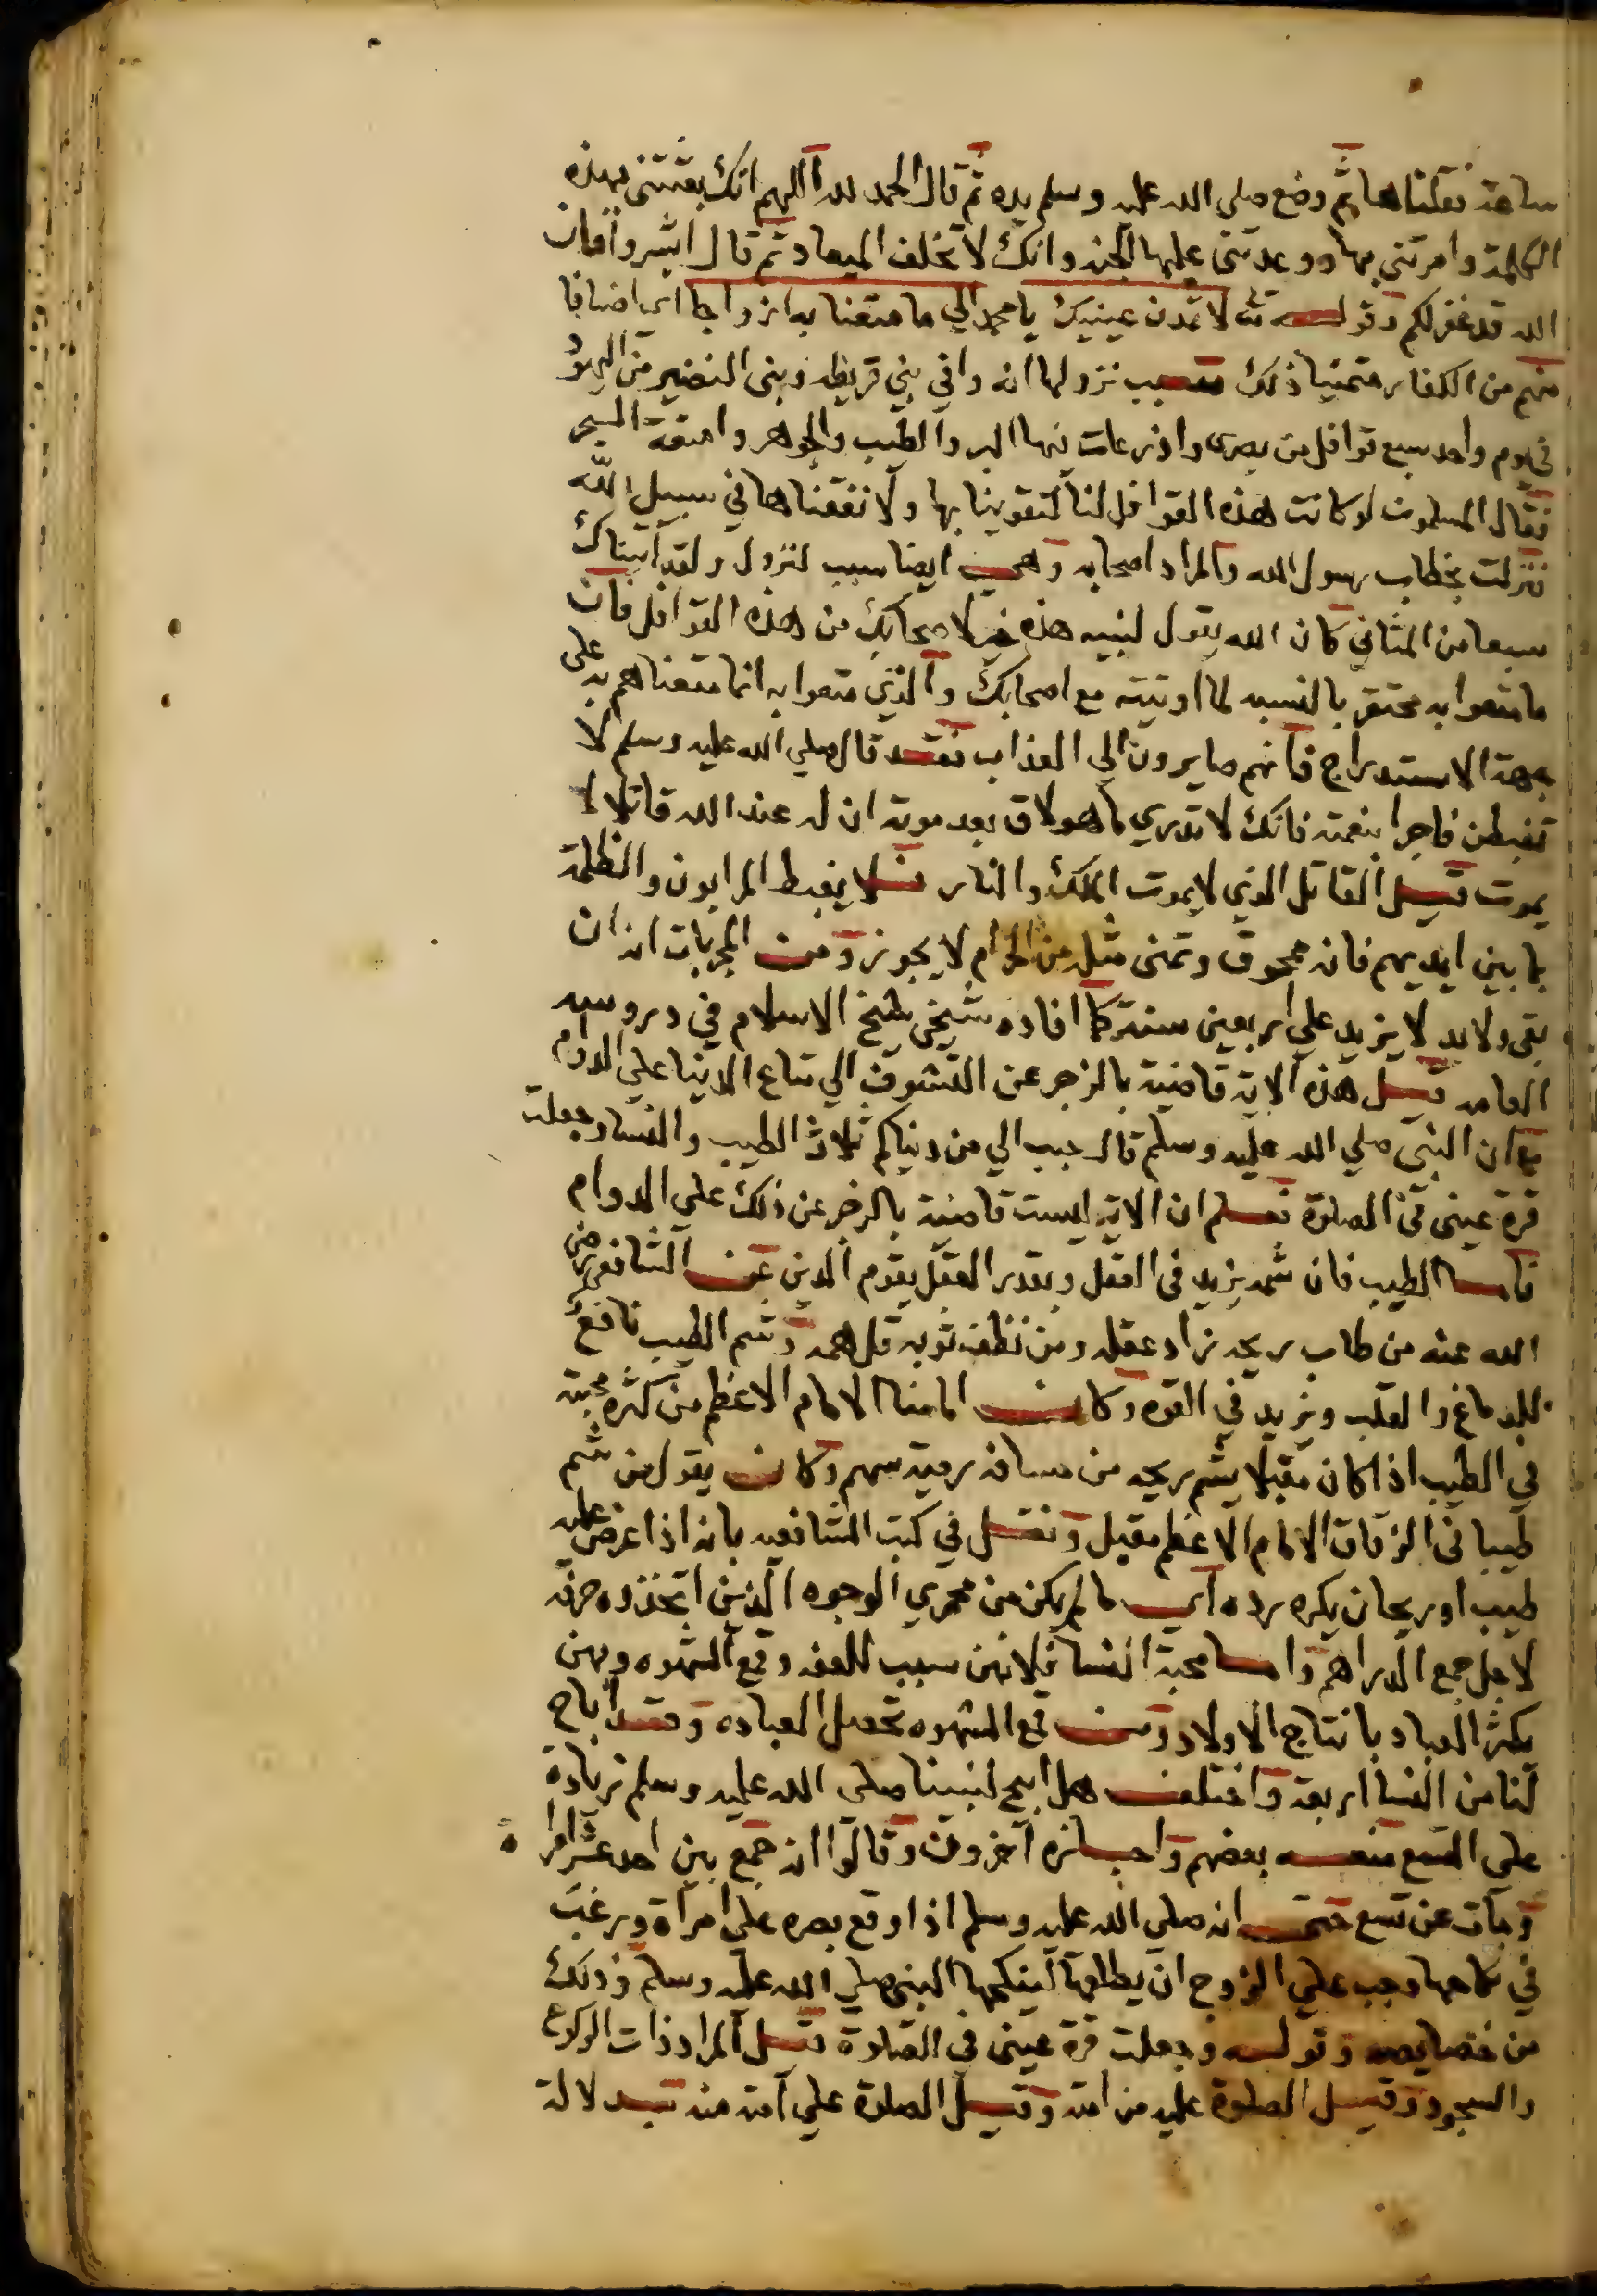 ساعة فقلناها ثم وضع صلي الله عليه وسلم يده ثم قال الحمد لله اللهم انك بعثتني بهذه
الكلمة وامرتني بها ووعدتني عليها الجنه وانك لا تخلف الميعاد ثم قال ابشروا فان
الله قد غفر لكم وقوله تعه لا تمدن عينيك يا محمد الي ما متعنا به ازواجا اي اصنافا
منهم من الكفار متمنيا ذلك سبب نزولها انه وافي بني قريظه وبني النضير من اليهود
في يوم واحد سبع قوافل من بصرى واذرعات فيها البر والطيب والجوهر وامتعة البحر
فقال المسلمون لو كانت هذه القوافل لنا لتقوينا بها ولانفقناها في سبيل الله
فنزلت بخطاب رسول الله والمراد اصحابه وهي ايضا سبب لنزول ولقد اتيناك
سبعا من المثاني كان الله يقول لنبيه هذه خير لاصحابك من هذه القوافل فان
ما متعوا به محتقر بالنسبه لما اوتيته مع اصحابك والذي متعوا به انما متعناهم به على
جهة الاستدراج فانهم صايرون الي العذاب فقد قال صلي الله عليه وسلم لا
تغبطن فاجرا بنعمته فانك لا تدري ما هو لاق بعد موته ان له عند الله قاتلا لا
يموت قيل القاتل الذي لا يموت الملك والنار فلا يغبط المرابون والظلمة
بما بين ايديهم فانه ممحوق وتمنى مثله من الحرام لا يجوز ومن المجربات انه ان
بقى ولابد لا يزيد علي اربعين سنة كما افاده شيخي شيخ الاسلام في دروسه
العامه قيل هذه الاية قاضية بالزجر عن التشوف الي متاع الدنيا علي الدوام
مع ان النبي صلي الله عليه وسلم قال حبب الي من دنياكم ثلاث الطيب والنسا وجعلت
قرة عيني في الصلوة فعلم ان الاية ليست قاضية بالزجر عن ذلك علي الدوام
فاما الطيب فان شمه يزيد في العقل وبقدر العقل يقوم الدين عن الشافعي رضي
الله عنه من طاب ريحه زاد عقله ومن نظف ثوبه قل همه وشم الطيب نافع
للدماغ والقلب ويزيد في القوه وكان امامنا الامام الاعظم من كثرة محبته
في الطيب اذا كان مقبلا يشم ريحه من مسافه رمية سهم وكان يقول من شم
طيبا في الزقاق الامام الاعظم مقبل ونقل في كتب الشافعيه بانه اذا عرض عليه
طيب او ريحان يكره رده اي ما لم يكن من محمري الوجوه الذين اتخذوه حرفه
لاجل جمع الدراهم واما محبة النسا فلانهن سبب للعفه وقمع الشهوه وبهن
يكثر العباد بانتاج الاولاد ومن قمع الشهوه تحصل العباده وقد اباح
لنا من النسا اربعة واختلف هل ابيح لنبينا صلي الله عليه وسلم زيادة
علي التسع منعه بعضهم واجازه آخرون وقالوا انه جمع بين احد عشر امراة
ومات عن تسع حتى انه صلي الله عليه وسلم اذا وقع بصره علي امراة ورغب
في نكاحها وجب علي الزوج ان يطلقها لينكحها النبي صلي الله عليه وسلم وذلك
من خصايصه وقوله وجعلت قرة عيني في الصلوة قيل المراد ذات الركوع
والسجود وقيل الصلوة عليه من امته وقيل الصلوة علي امته منه بدلالة